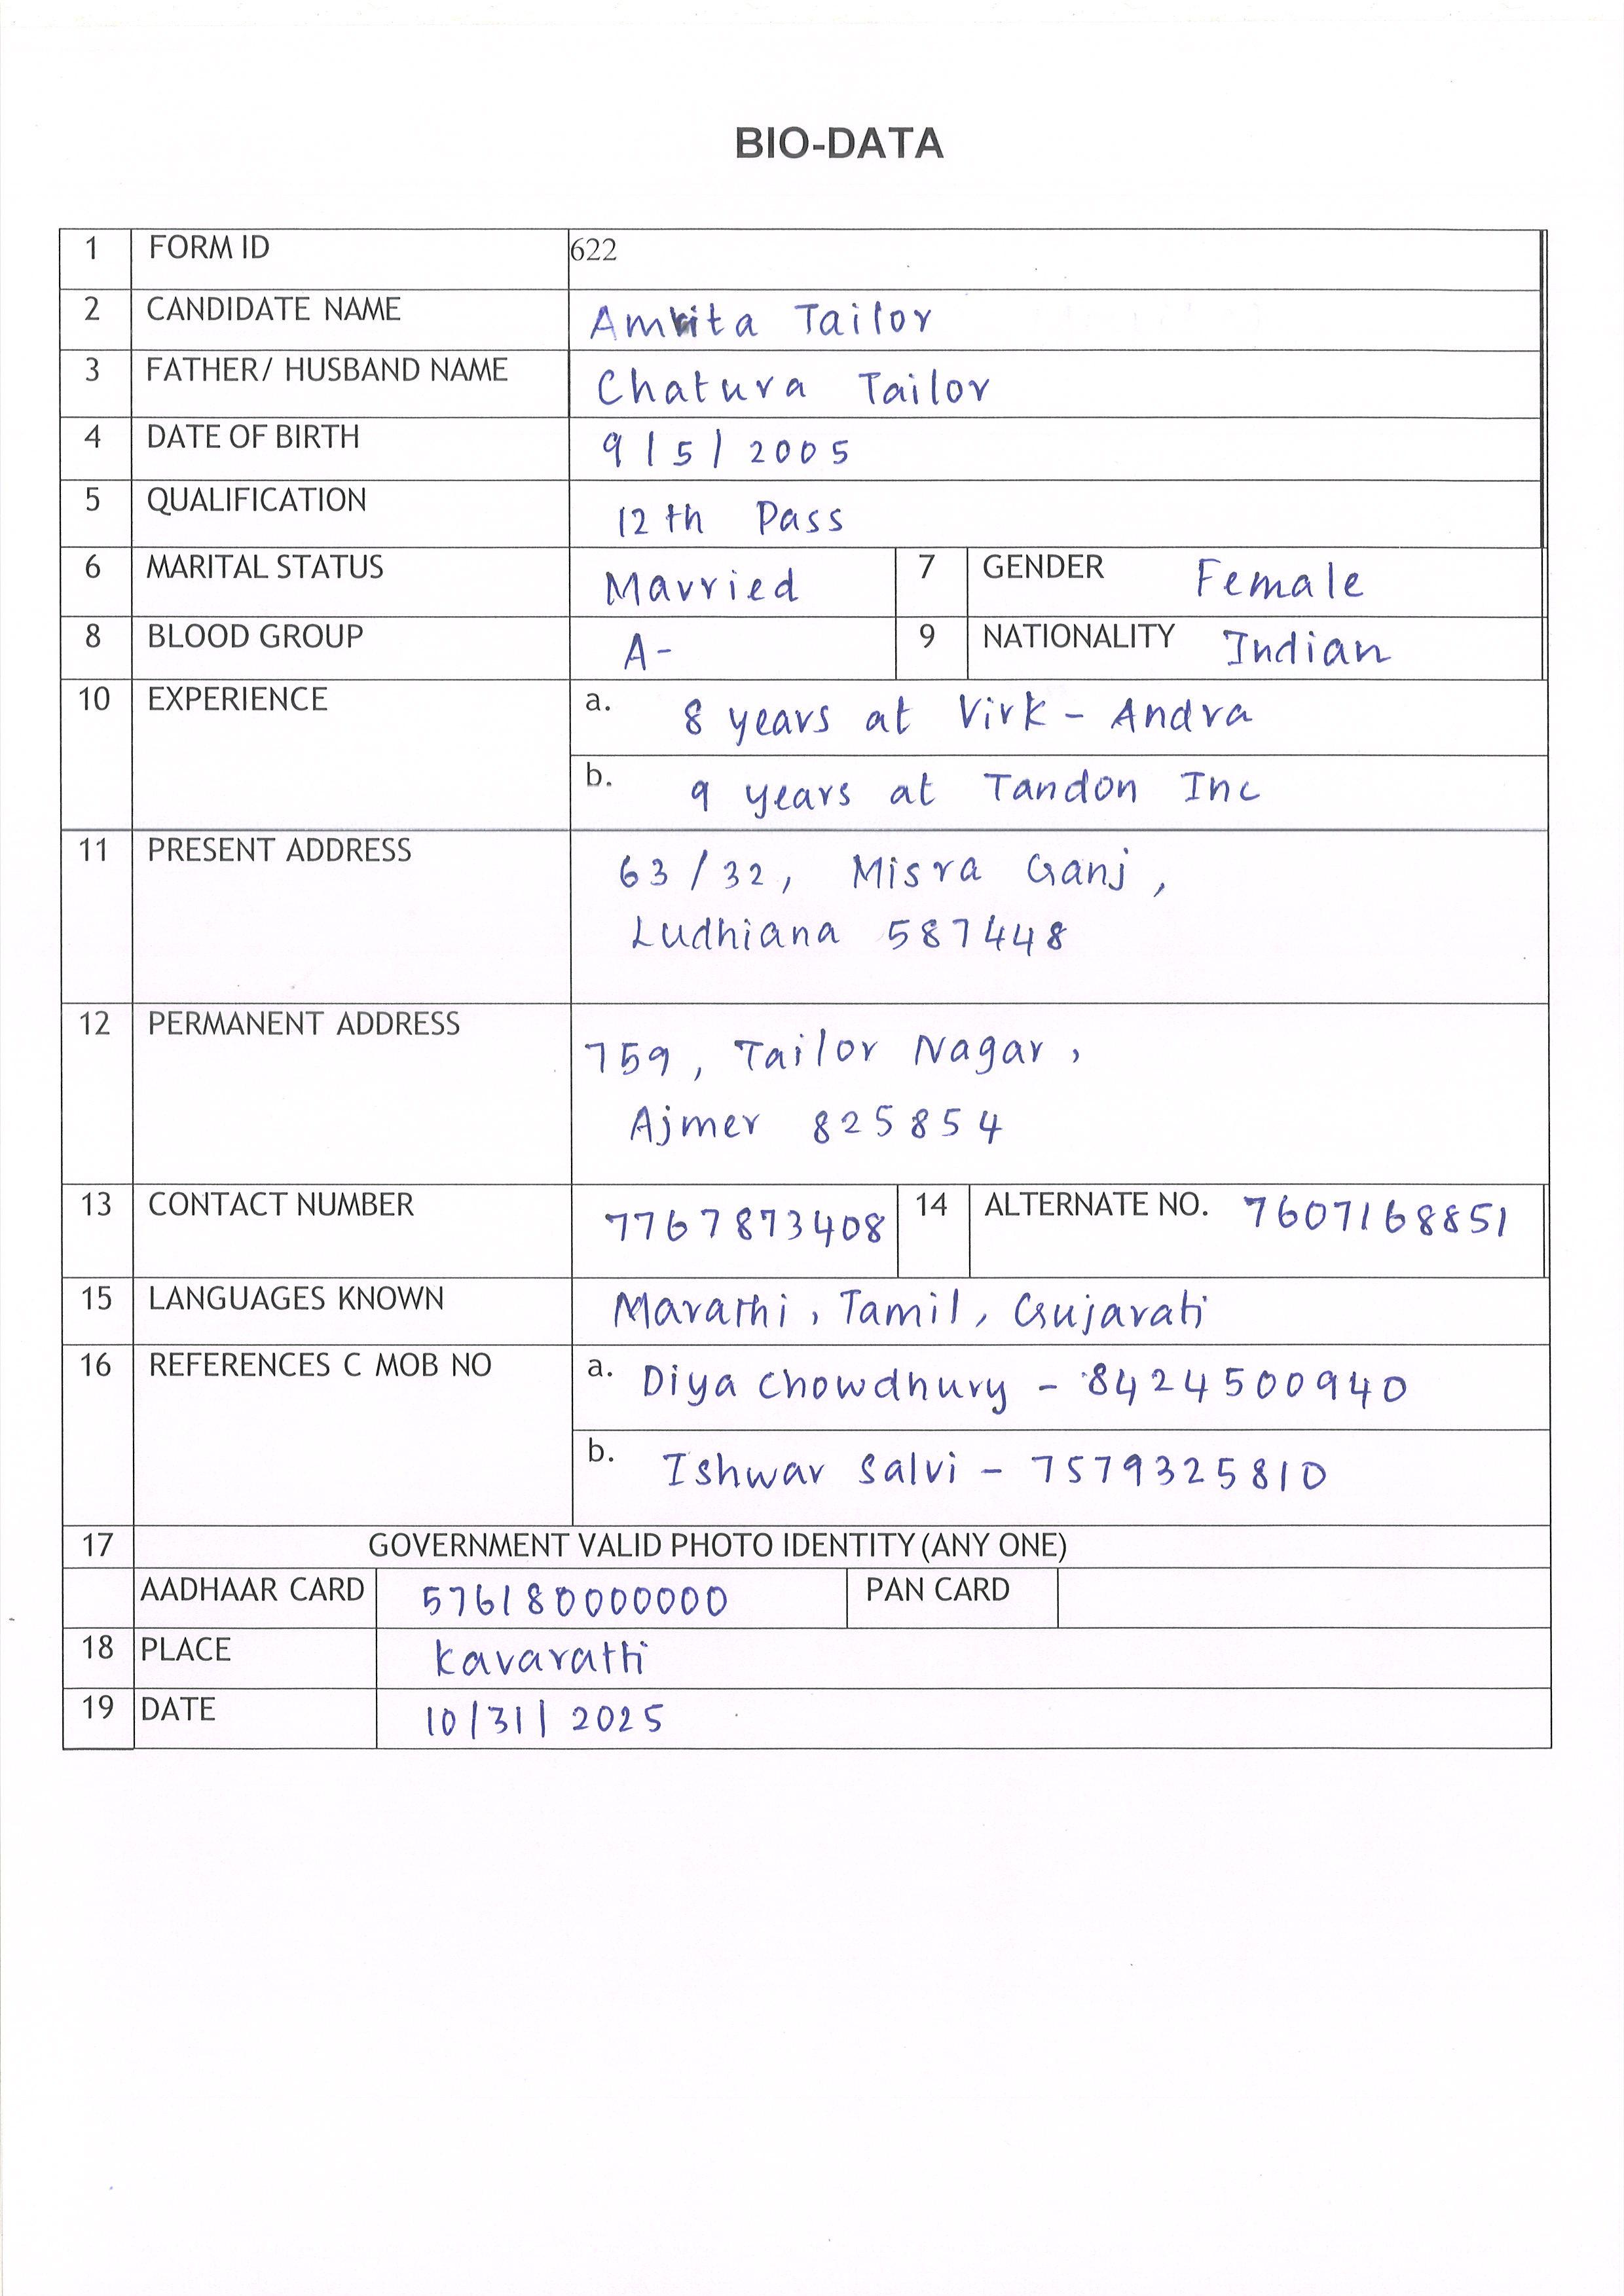 BIO-DATA
1 FORM ID 622
2 CANDIDATE NAME Amrita Tailor
3 FATHER/ HUSBAND NAME Chatura Tailor
4 DATE OF BIRTH 9/5/2005
5 QUALIFICATION 12th Pass
6 MARITAL STATUS Married 7 GENDER Female
8 BLOOD GROUP A- 9 NATIONALITY Indian
10 EXPERIENCE a. 8 years at Virk - Andra
b. 9 years at Tandon Inc
11 PRESENT ADDRESS 63/32, Misra Ganj,
Ludhiana 587448
12 PERMANENT ADDRESS 759, Tailor Nagar,
Ajmer 825854
13 CONTACT NUMBER 7767873408 14 ALTERNATE NO. 7607168851
15 LANGUAGES KNOWN Marathi, Tamil, Gujarati
16 REFERENCES C MOB NO a. Diya Chowdhury - 8424500940
b. Ishwar Salvi - 7579325810
17 GOVERNMENT VALID PHOTO IDENTITY (ANY ONE)
AADHAAR CARD 576180000000 PAN CARD
18 PLACE Kavaratti
19 DATE 10/31/2025